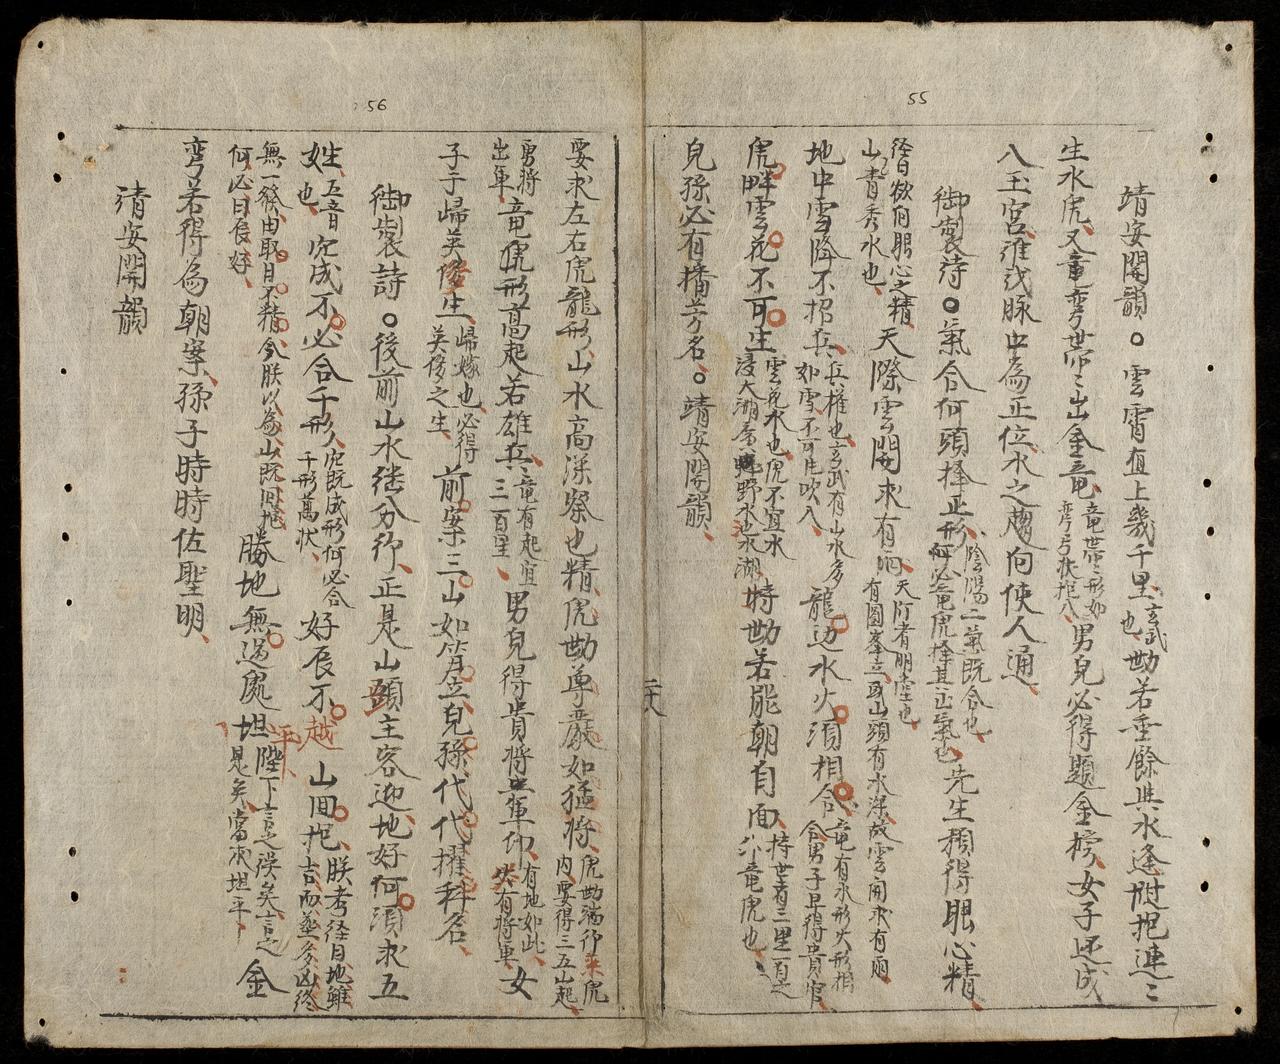 55
靖安開韻。雲霄直上幾千里玄武也勘若垂餘與水逢附抱連〻
生水虎又竜弯世帶〻出金竜竜世帶〻形如弯弓状抱八男兒必得題金榜女子还成
八玉宮誰或脉中為正位水之趨向使人通
御製詩。氣合何頭擇正形陰陽二氣既合也何必竜虎擇其正氣也先生稱得眼心精
径曰欲向眼心之精山青秀水也天際雲開求有雨天阶者明堂也有圓峯立山頭有水深故雲開求有雨
地中雪降不招兵兵權也玄武有山水多如雪不可虎吹入龍边水火須相合竜有水形火形相合男子早得貴官
虎畔雲花不可生雲花水也虎不宜水浸大湖野水池水湖特勘若能朝自面持世有三里百之八竜虎也
兒孫必有播芳名。靖安開韻
二十八
56
要求左右虎龍形山水高深察也精虎勘尊嚴如猛将虎勘端行來虎内要得三五山起
勇將出軍竜虎形高起若雄兵竜有起宜三百里男兒得貴將軍印有地如此必有將軍女
子于歸英俊生歸嫁也必得英俊之生前案三山如筆立兒孫代代擢科名
御製詩。後前山水继分行正是山頭主客迎地好何須求五
姓五音也穴成不必合千形穴既成形何必合千形萬状好辰不越山回抱朕考径曰地雖吉而葬多凶終
無一發由取日不精今朕以為山既回抱何必日辰好勝地無過處坦平陛下言之誤矣言之是矣當求坦平金
弯若得為朝案孫子時時佐聖明
靖安開韻